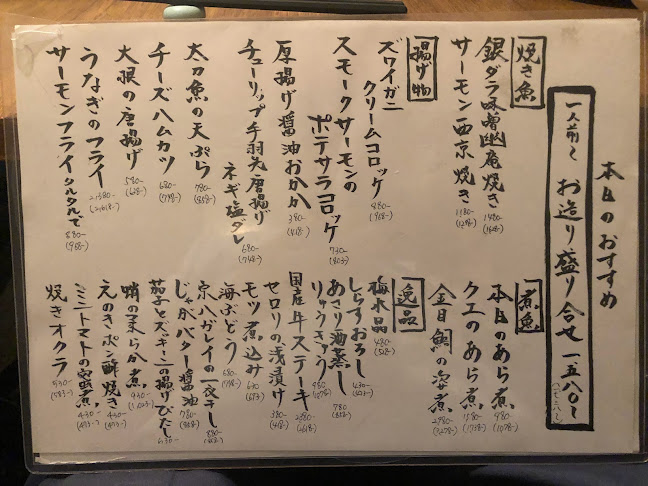 本日のおすすめ
一人前〜 お造り盛り合せ 一五八〇〜
(一七三八〜)
焼き魚
銀ダラ味噌幽庵焼き 1480-
サーモン西京焼き 1180-
(1298-)
揚げ物
ズワイガニ
クリームコロッケ 880-
(968-)
スモークサーモンの
ポテサラコロッケ 730-
(803-)
厚揚げ醤油おかか 380-
(418-)
チューリップ手羽先唐揚げ
ネギ塩ダレ 680-
(748-)
太刀魚の天ぷら 780-
(858-)
チーズハムカツ 680-
(748-)
大根の唐揚げ 580-
(638-)
うなぎのフライ 2,380-
(2,618-)
サーモンフライタルタルで 880-
(968-)
煮魚
本日のあら煮 980-
(1078-)
クエのあら煮 1580-
(1738-)
金目鯛の姿煮 2980-
(3278-)
逸品
梅水晶 480-
(528-)
しらすおろし 630-
(693-)
あさり酒蒸し 780
(858-)
りゅうきゅう 980
(1078-)
国産牛ステーキ 2380-
(2618-)
セロリの浅漬け 380-
(418-)
モツ煮込み 630
(693)
海ぶどう 680-
(748-)
宗八ガレイの一夜干し 880-
じゃがバター醤油 780-
(858-)
茄子とズッキーニの揚げびたし 630-
蛸の柔らか煮 930-
(1,023-)
えのきポン酢焼き 450-
(495-)
ミニトマトの蜜煮 450-
(495-)
焼きオクラ 530-
(583-)